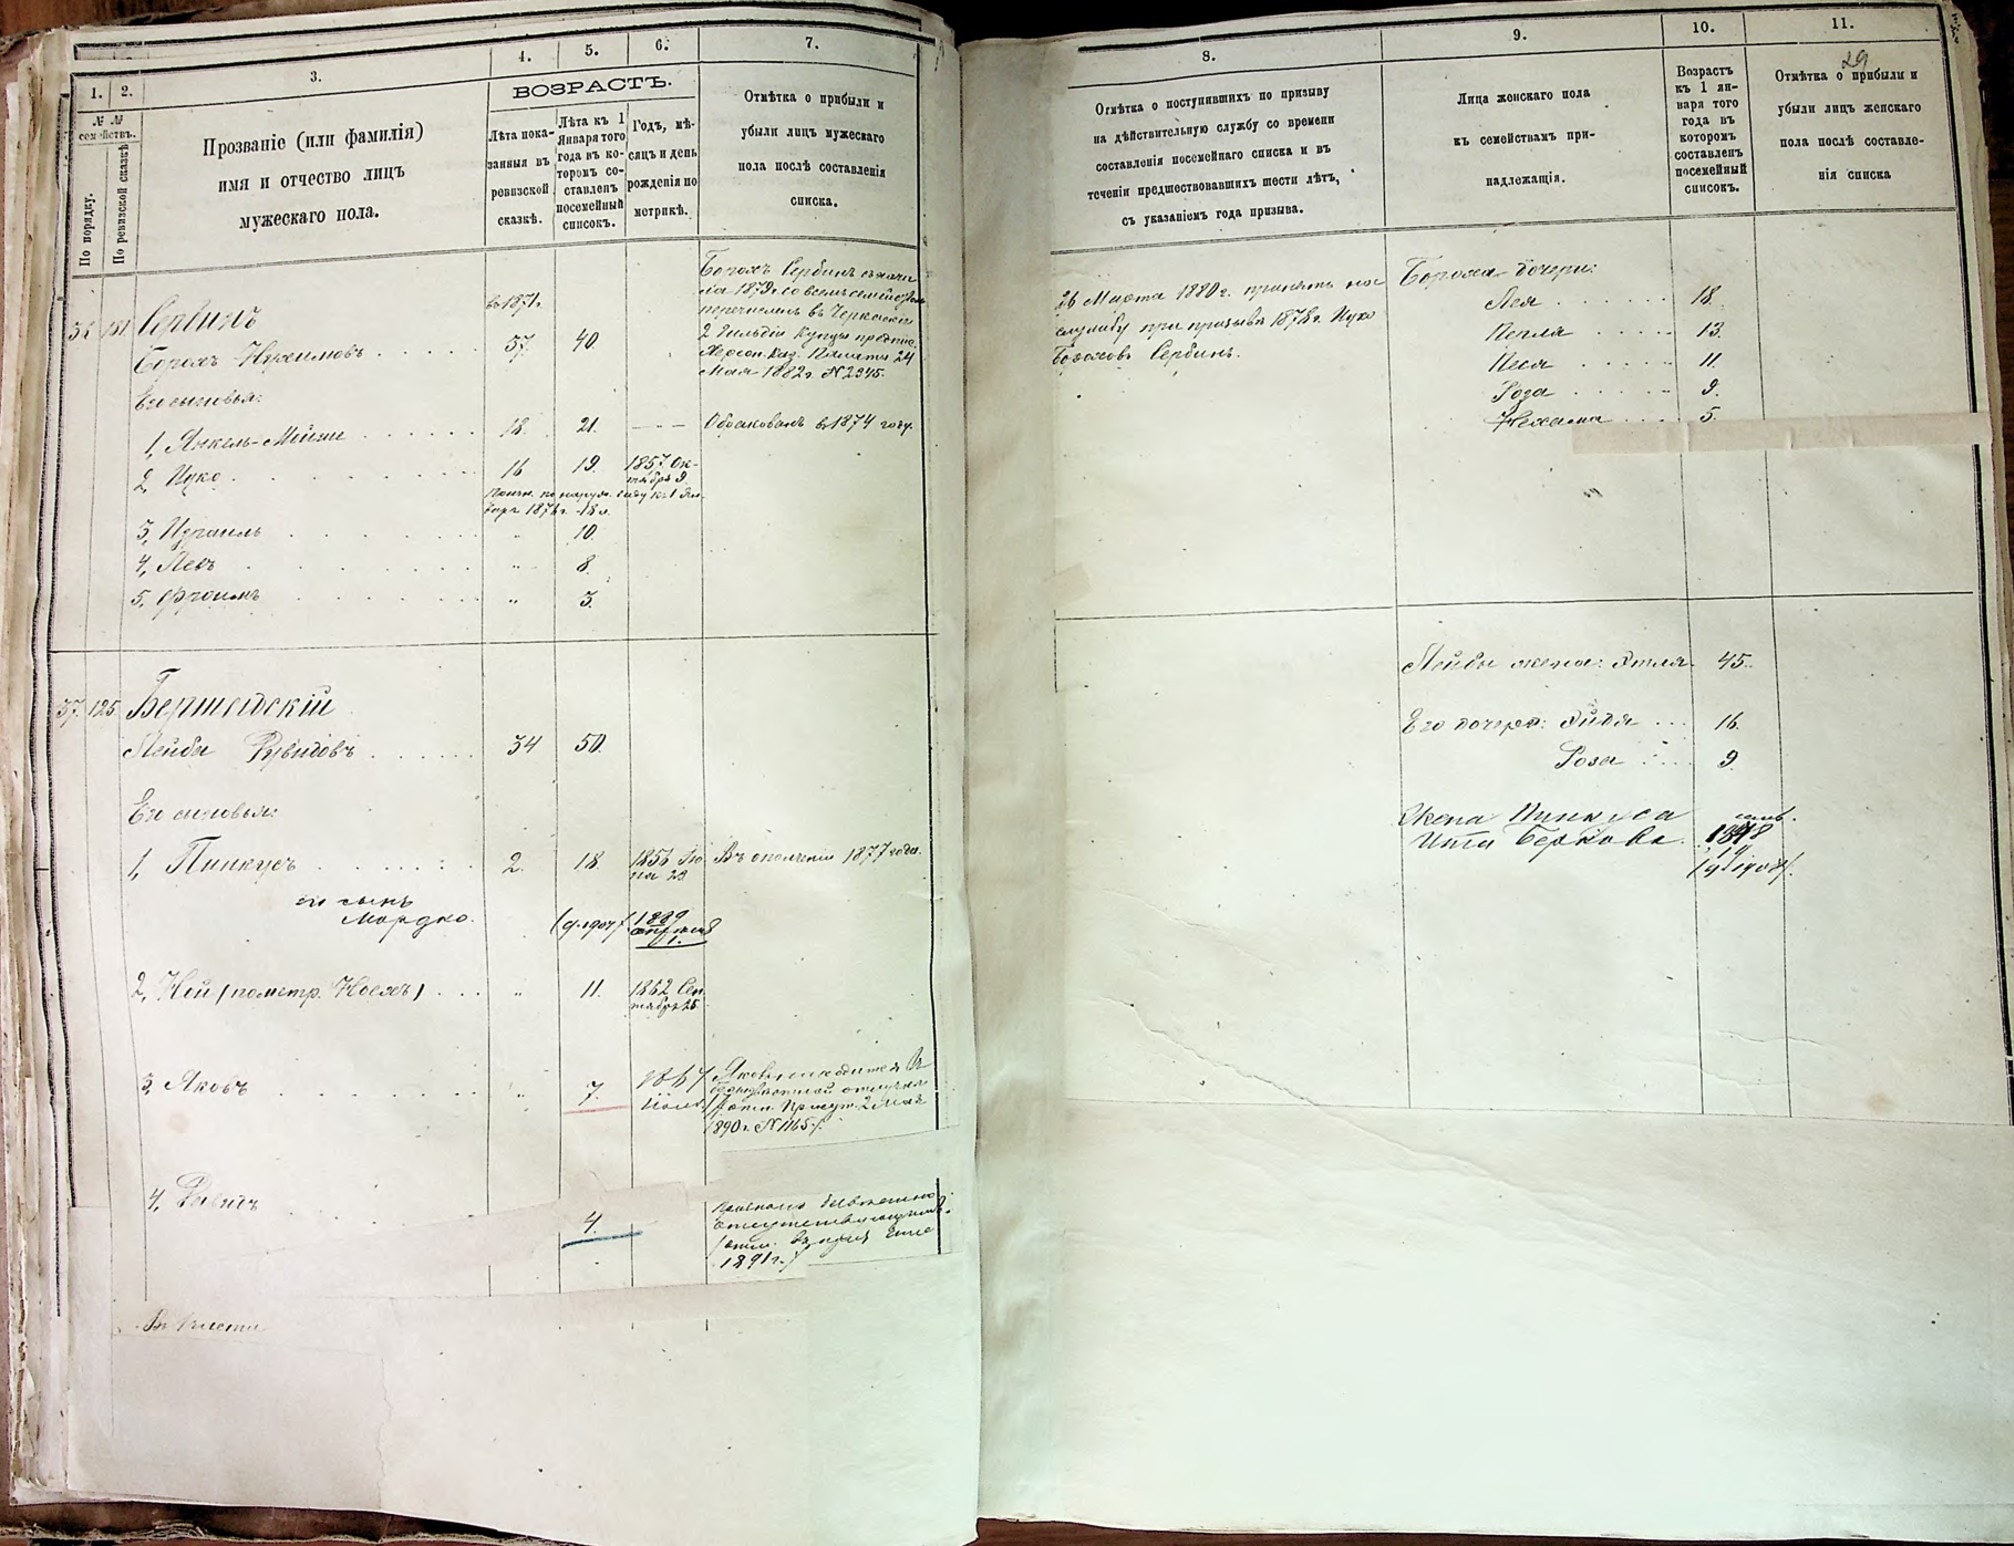 1.
2.
3.
4.
5.
6.
7.
№ №
семействъ.
По порядку.
По ревизской сказкѣ
Прозваніе (или фамилія)
имя и отчество лицъ
мужескаго пола.
ВОЗРАСТЪ.
Лѣта пока-
занныя въ
ревизской
сказкѣ.
Лѣта къ 1
Января того
года въ ко-
торомъ со-
ставленъ
посемейный
списокъ.
Годъ, мѣ-
сяцъ и день
рожденія по
метрикѣ.
Отмѣтка о прибыли и
убыли лицъ мужескаго
пола послѣ составленія
списка.
Сербинъ
въ 1871 г.
Борохъ Нухимовъ
37.
40
Борохъ Сербинъ съ начала 1879 г. со всемъ семействомъ
перечисленъ въ Черкасскіе
2 гильдіи купцы предпис.
Херсон. Каз. Палаты 24
Мая 1882 г. № 2945.
Его сыновья:
1, Янкель-Мойше
18.
21.
Обракованъ въ 1874 году.
2, Ицко
16
19.
1857. Ок-
тября 9.
Призн. по наруж. виду къ 1 Ян-
варя 1878 г. 18 л.
3, Израиль
10.
4, Левъ
8.
5, Фроимъ
3.
37.
125
Бершадскій
Лейба Рувидовъ
34
50.
Его сыновья:
1, Пинкусъ
2.
18.
1856 Iю-
ня 23
Въ ополченіи 1877 года.
его сынъ
Мордко.
1889
апреля
1.
2, Ной (по метр. Ноехъ)
11.
1862 Сен-
тября 25
3, Яковъ
7.
1867
Яковъ находится въ
безызвестной отлучке
1890 г. № 1165.
4,
4.
безвестно
отсутствующимъ.
1891 г.)
8.
9.
10.
11.
29
Отмѣтка о поступившихъ по призыву
на дѣйствительную службу со времени
составленія посемейнаго списка и въ
теченіи предшествовавшихъ шести лѣтъ,
съ указаніемъ года призыва.
Лица женскаго пола
къ семействамъ при-
надлежащія.
Возрастъ
къ 1 ян-
варя того
года въ
которомъ
составленъ
посемейный
списокъ.
Отмѣтка о прибыли и
убыли лицъ женскаго
пола послѣ составле-
нія списка
26 Марта 1880 г. принятъ на
службу при призыве 1878 г. Ицко
Бороховъ Сербинъ.
Бороха дочери:
Лея
18.
Перля
13.
Песя
11.
Роза
9.
Нехама
5.
Лейбы жена: Этля
45.
Его дочери: Эйдя
16.
Роза
9.
Жена Пинкуса
Ита Беркова